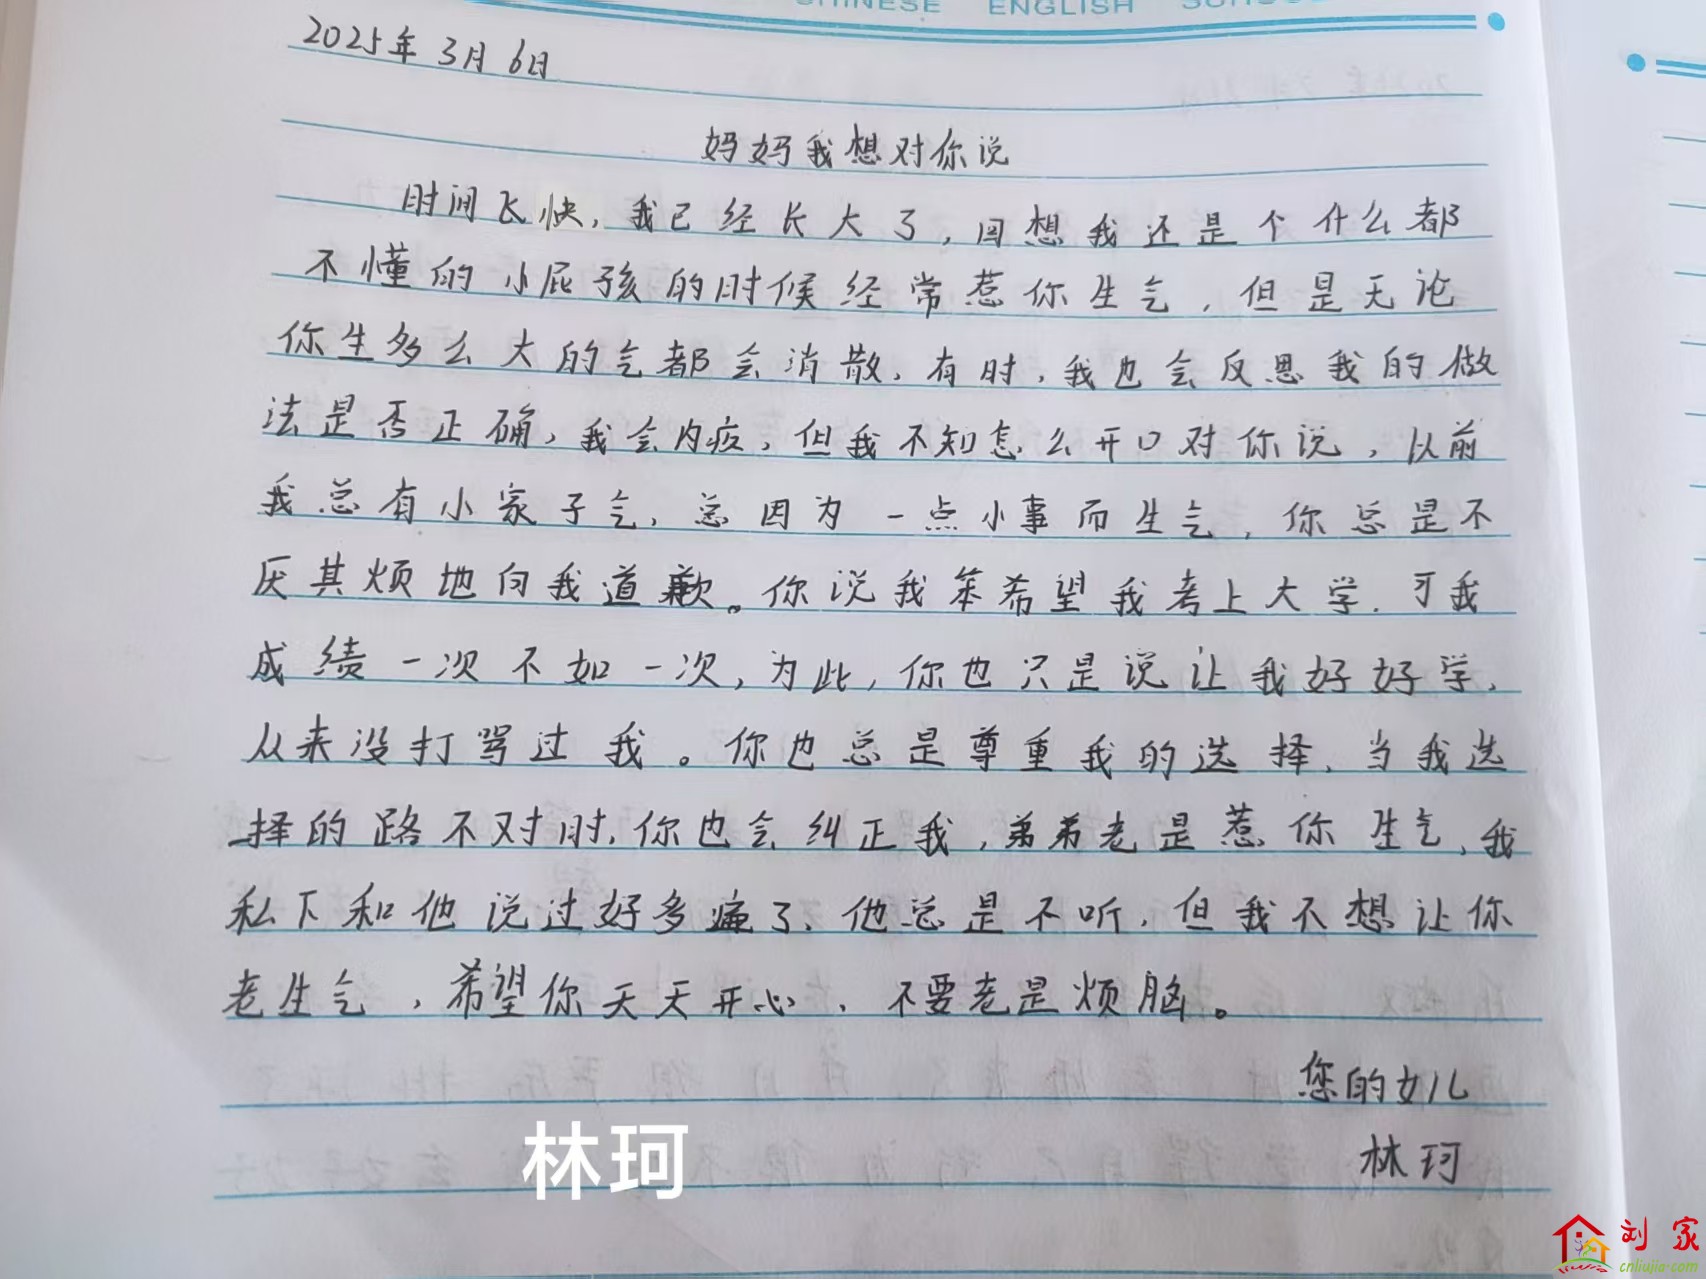 CHINESE ENGLISH
2025年3月6日
妈妈我想对你说
时间飞快，我已经长大了，回想我还是个什么都
不懂的小屁孩的时候经常惹你生气，但是无论
你生多么大的气都会消散，有时，我也会反思我的做
法是否正确，我会内疚，但我不知怎么开口对你说，以前
我总有小家子气，总因为一点小事而生气，你总是不
厌其烦地向我道歉。你说我笨希望我考上大学，可我
成绩一次不如一次，为此，你也只是说让我好好学，
从来没打骂过我。你也总是尊重我的选择，当我选
择的路不对时，你也会纠正我，弟弟老是惹你生气，我
私下和他说过好多遍了，他总是不听，但我不想让你
老生气，希望你天天开心，不要老是烦脑。
您的女儿
林珂
林珂
刘家
cnliujia.com